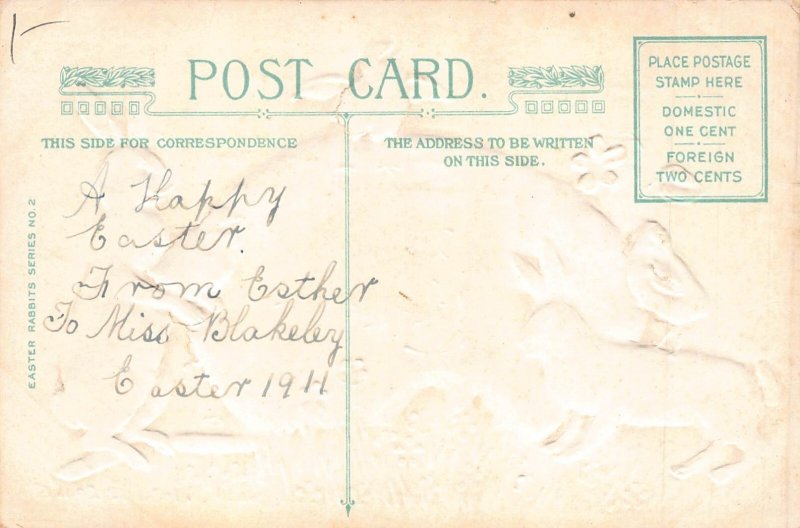 POST CARD.
THIS SIDE FOR CORRESPONDENCE
THE ADDRESS TO BE WRITTEN
ON THIS SIDE.
PLACE POSTAGE
STAMP HERE
DOMESTIC
ONE CENT
FOREIGN
TWO CENTS
EASTER RABBITS SERIES NO. 2
A Happy
Easter.
From Esther
To Miss Blakeley
Easter 1911